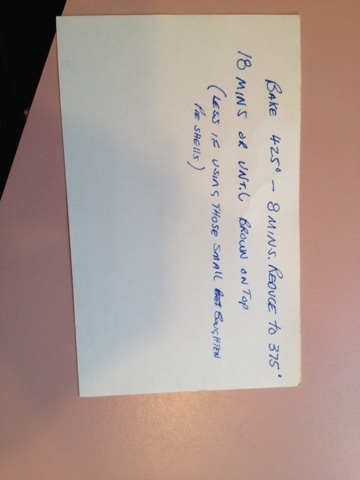 BAKE 425° - 8 MINS. REDUCE TO 375°
18 MINS OR UNTIL BROWN ON TOP
(LESS IF USING THOSE SMALL BOUGHTEN
PIE SHELLS)